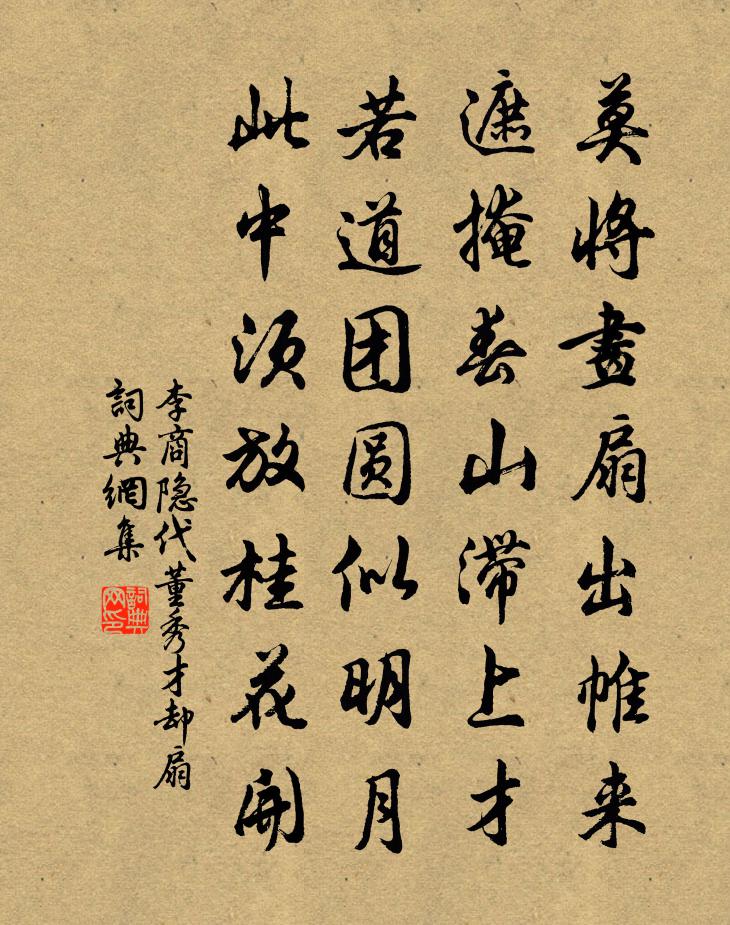 莫将畫扇出帷来
遮掩春山滞上才
若道团圆似明月
此中须放桂花開
李商隐代董秀才却扇
詞典網集
詞典网印